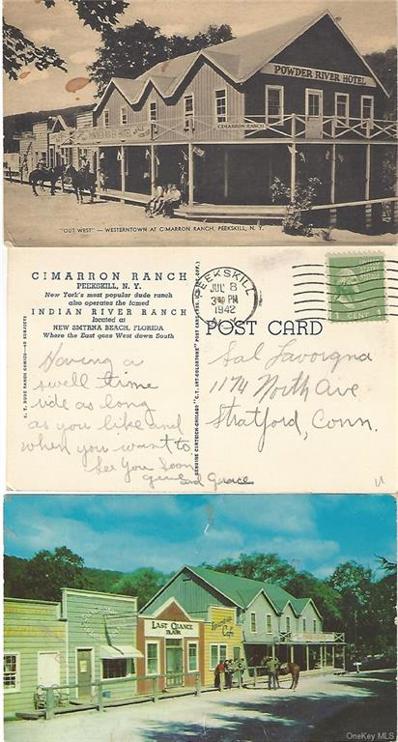 POWDER RIVER HOTEL
CIMARRON RANCH
"OUT WEST" — WESTERNTOWN AT CIMARRON RANCH, PEEKSKILL, N. Y.
CIMARRON RANCH
PEEKSKILL, N. Y.
New York's most popular dude ranch
also operates the famed
INDIAN RIVER RANCH
located at
NEW SMYRNA BEACH, FLORIDA
Where the East goes West down South
PEEKSKILL
JUL 8
3 PM
1942
N.Y.
1 CENT
POST CARD
Having a
swell time
ride as long
as you like and
when you want to
See You Soon
and Grace
Sal Lavorgna
1174 North Ave
Stratford, Conn.
LAST CHANCE
BAR
Cafe
OneKey MLS